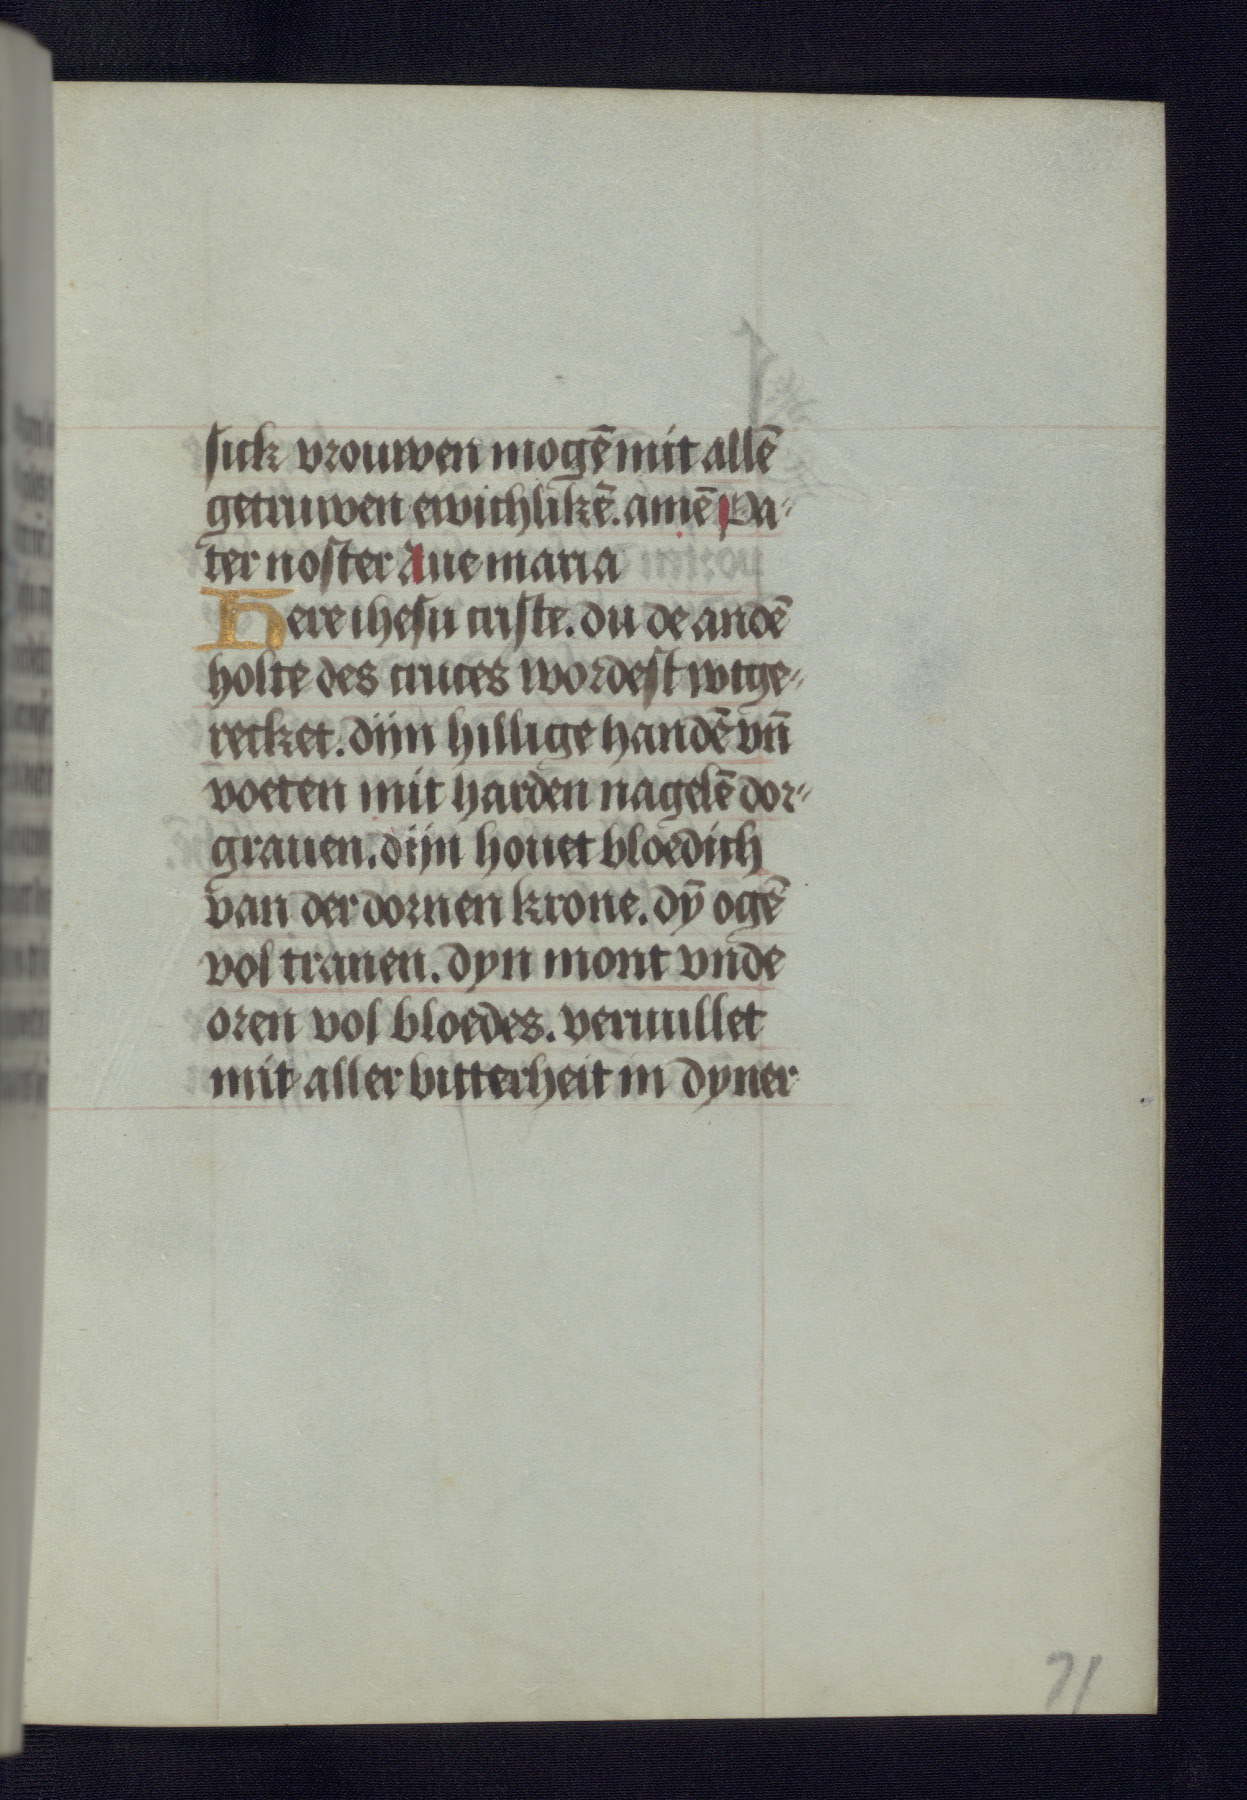 sick vrouwen mogē mit allē
getruwen ewichlikē. amē Pa-
ter noster Aue maria
Here ihesu criste. du de andē
holte des cruces wordest wtge-
recket. dijn hillige handē vn̄
voeten mit harden nagelē dor-
grauen. dijn houet bloedich
van der dornen krone. dȳ ogē
vol tranen. dyn mont vnde
oren vol bloedes. veruullet
mit aller bitterheit in dyner
71